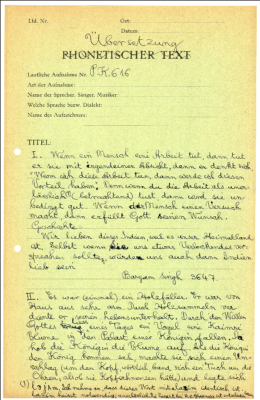 Lfd. Nr. Ort:
Datum:
Übersetzung
PHONETISCHER TEXT
Lautliche Aufnahme Nr. P.K. 616
Art der Aufnahme:
Name des Sprecher, Sänger, Musiker
Welche Sprache bezw. Dialekt:
Name des Aufzeichners:
TITEL:
I. Wenn ein Mensch eine Arbeit tut, dann tut
er sie mit irgendeiner Absicht, denn er denkt sich
"Wenn ich diese Arbeit tun, dann werde ich diesen
Vorteil haben". Denn wenn du die Arbeit als
tust dann wird sie un-
bedingt gut. Wenn der Mensch einen Versuch
macht dann erfüllt Gott seinen Wunsch.
Geschichte.
Wir lieben dies Indien, weil es unser Heimatland
ist, selbst wenn uns etwas Verlockendes ver-
sprechen sollte, würden uns auch dann Indien
lieb sein
Singh 3647.
II. Es war (einmal) ein Holzfäller. Er war von
Haus aus sehr arm. Durch Holzsammeln ver-
diente er seinen Lebensunterhalt. Durch den Willen
Gottes eines Tages ein Vogel eine
Blume in den Palast einer Königin fallen. Da
hob die Königin die Blume auf. Als die Königin
den König kommen sah, machte sie sich einen Um-
schlag um den Kopf, band sich ein Tuch um die
Ohren, als ob sie Kopfschmerzen hätte, und legte sich